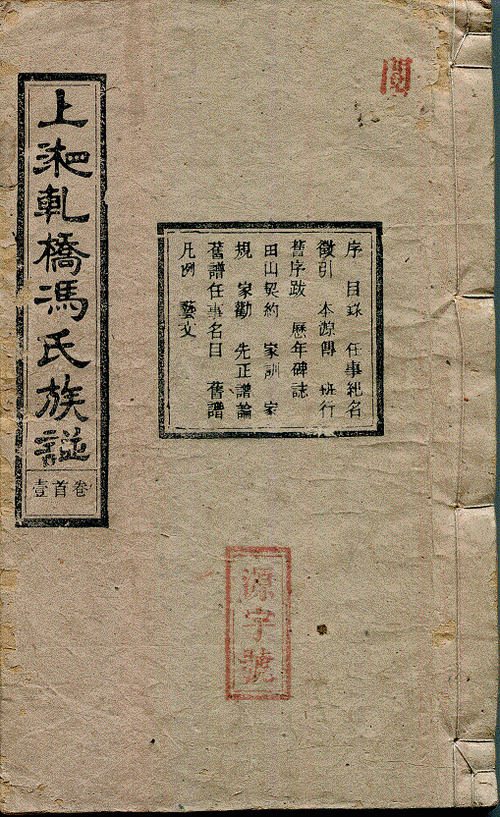 上湘軋橋馮氏族譜
卷首壹
序 目錄 任事紀名
徵引 本源傳 班行
舊序跋 歷年碑誌
田山契約 家訓 家
規 家勸 先正譜論
舊譜任事名目 舊譜
凡例 藝文
源字號